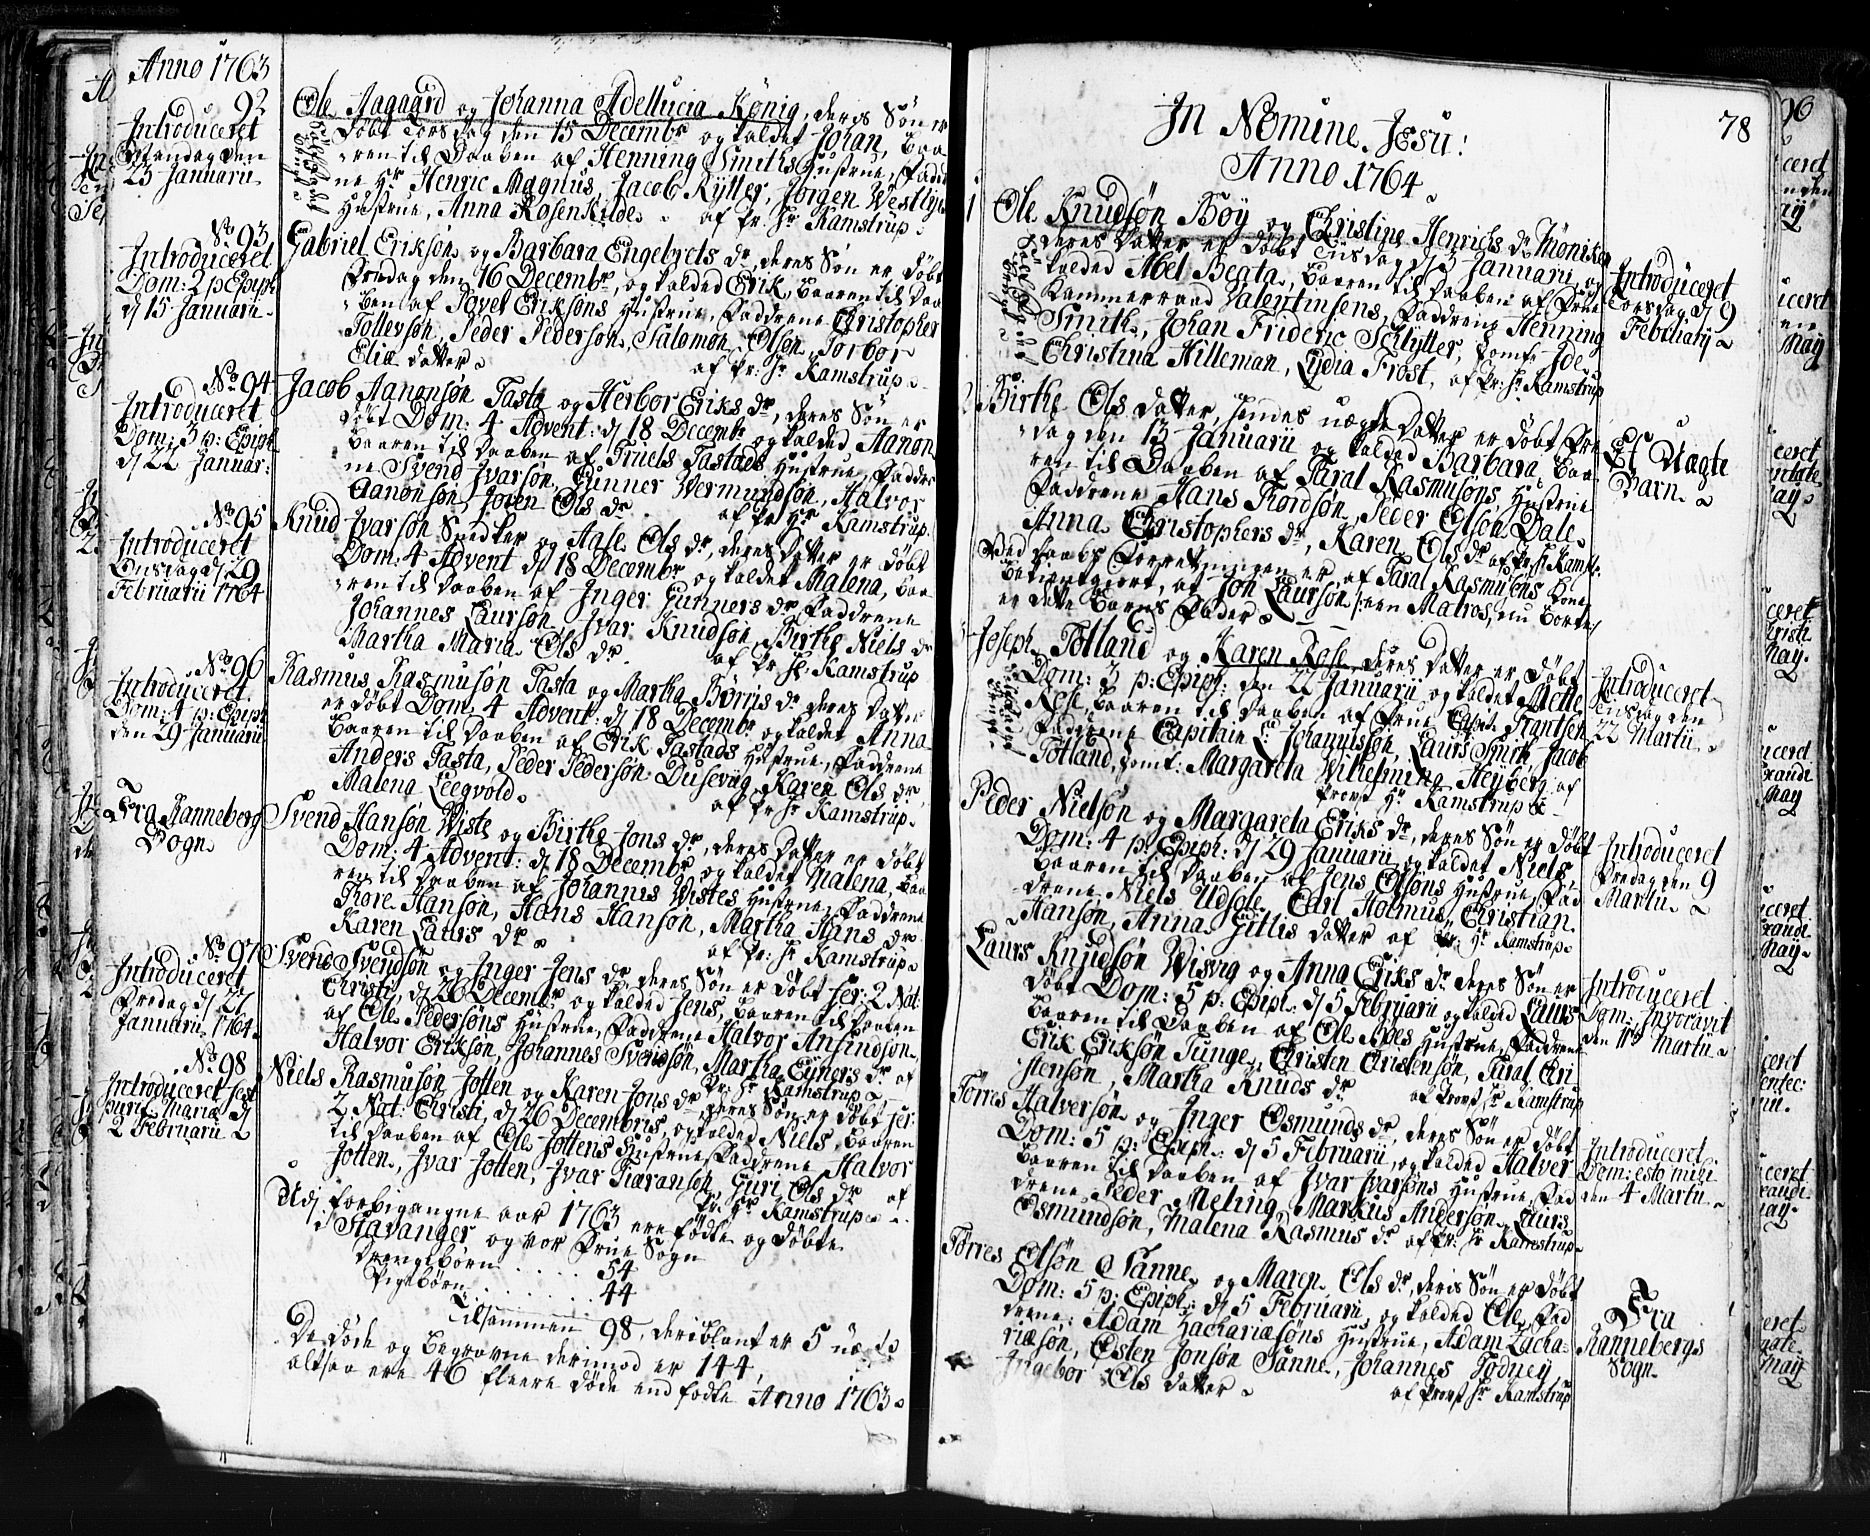 Anno 1763
92
Introduceret
Mandag den
23 Januarii
Ole Aagaard og Johanna Adellucia König, deres Søn er
døbt Torsdag den 15 Decembr og kaldet Johan, baa-
ren til Daaben af Henning Smiths Hustrue, Fadd
ne Hr Henric Magnus, Jacob Kytter, Jørgen Westlye
Hustrue, Anna Rosenkilde. af Pr: Hr Kamstrup.
No 93
Introduceret
Dom: 2 p Epiph
d 15 Januarii.
Gabriel Eriksøn og Barbara Engebrets dr, deres Søn er døbt
Fredag den 16 Decembr, og kalded Erik, baaren til Daa
ben af Povel Eriksøns Hustrue, Faddrene Christopher
Tollevsøn, Peder Pedersøn, Salomon Olsøn, Torbor
Eliæ datter.
af Pr: Hr Kamstrup.
No 94
Introduceret
Dom: 3 p: Epiph
d 22 Januar:
Jacob Aanonsøn Tasta og Herbor Eriks dr, deres Søn er
døbt Dom: 4 Advent: d 18 Decembr og kaldet Aanon
baaren til Daaben af Truels Tastads Hustrue, Faddre
ne Svend Ivarsøn, Gunner Wermundsøn, Halvor
Aanonsøn, Joren Ols dr.
af Pr Hr Kamstrup.
No 95
Introduceret
Onsdag d 29
Februarii 1764
Knud Ivarsøn Snedker og Aase Ols dr, deres datter er døbt
Dom: 4 Advent d 18 Decembr og kaldet Malena, baa-
ren til daaben af Inger Gunners dr, Faddrene
Johannes Laursøn, Ivar Knudsøn, Birthe Niels dr
Martha Maria Ols dr.
af Pr Hr Kamstrup
No 96
Introduceret
Dom: 4 p: Epiph
den 29 Januarii
Rasmus Rasmusøn Tasta og Martha Børris dr deres datter
er døbt Dom: 4 Advent: d 18 Decembr og kaldet Anna
baaren til daaben af Erik Tastads Hustrue, Faddrene
Anders Tasta, Peder Pedersøn Dusevig, Karen Ols dr,
Malena Leegvold.
af Pr Hr Kamstrup.
Fra Ranneberg
Sogn
Svend Hansøn Wiste og Birthe Jons dr, deres datter er døbt
Dom: 4 Advent: d 18 Decembr og kaldet Malena, baa
ren til daaben af Johannis Wistes Hustrue, Faddrene
Kore Hansøn, Hans Hansøn, Martha Hans dr
Karen Laurs dr.
af Pr: Hr Kamstrup.
No 97
Introduceret
Fredag d 27
Januarii 1764.
Svend Svendsøn og Inger Jens dr, deres Søn er døbt Fer: 2 Nat:
Christi, d 26 Decembr og kalded Jens, baaren til Daaben
af Ole Pedersøns Hustrue, Faddrene Halvor Ansindsøn,
Halvor Eriksøn, Johannes Svendsøn, Martha Eyners dr af
Pr: Hr Kamstrup
No 98
Introduceret Fest
purif: Mariæ d
2 Februarii
Niels Rasmusøn Jotten og Karen Jons dr, deres Søn er døbt Fer:
2 Nat: Christi, d 26 Decembris, og kalded Niels, baaren
til daaben af Ole Jottens Hustrue, Faddrene Halvor
Jotten, Ivar Jotten, Ivar Tiæransøn, Guri Ols dr af
Pr: Hr Kamstrup
Udj forbigangne aar 1763 ere fødte og døbte
i Stavanger og vor Frue Sogn
Drengebørn . . . . . 54
Pigebørn . . . . . . 44
Tilsammen 98, deriblant er 5 uægte
De døde og begravne derimod er 144,
altsaa ere 46 fleere døde end fødte Anno 1763.
78
In Nomine Jesu:
Anno 1764
1
Ole Knudsøn Bøy og Christine Henrichs dr Møniken
deres datter er døbt Tirsdag d 3 Januarii, og
kalded Abel Beata, baaren til daaben af Frue
Kammerraad Valentinsens, Faddrene Henning
Smith, Johan Frideric Schlytter, Jomfr: Joe
Christina Hilleman, Lydia Frost, af Pr: Hr Kamstrup
Introduceret
Torsdag d 9
Februarij
2
Birthe Ols datter, hendes uægte datter er døbt Fre
dag den 13 Januarii og kaldet Barbara, baa
ren til Daaben af Taral Rasmusøns Hustrue
Faddrene Hans Thordsøn, Peder Olsøn Dale
Anna Christophers dr, Karen Ols dr af Pr: Hr Kamst:
Ved Daabs Forretningen er af Taral Rasmusens Kone
bekiendtgiort, at Jon Laursøn /: een Matros, nu borte:/
er dette Barns Fader
Et Uægte
Barn.
Joseph Totland og Karen Rose, deres datter er døbt
Dom: 3 p: Epiph: den 22 Januarii og kaldet Mette
Nese, baaren til daaben af Frue Capt: Frantsen
Faddrene Capitain Lt Johannisøn, Laurs Smith, Jacob
Totland, Jomf: Margareta Wilhelmina Heyberg af
Provst Hr Kamstrup
Introduceret
Tirsdag den
22 Martii
Peder Nielsøn og Margareta Eriks dr, deres Søn er døbt
Dom: 4 p: Epiph: d 29 Januarii, og kaldet Niels
baaren til Daaben af Jens Olsøns Hustrue, Fad
drene Niels Udsole, Carl Holmus, Christian
Hansøn, Anna Gitlis datter af Pr: Hr Kamstrup
Introduceret
Fredag den 9
Martii
Laurs Knudsøn Wisvig og Anna Eriks dr deres Søn er
døbt Dom: 5 p: Epiph: d 5 Februarii og kalded Laurs
baaren til Daaben af Ole Moes Hustrue, Faddrene
Erik Eriksøn Tunge, Christen Christensøn, Taral Cri
stensøn, Martha Knuds dr
af Provst Hr Kamstrup
Introduceret
Dom: Invocavit
den 11te Martii
Torres Halversøn og Inger Osmunds dr, deres Søn er døbt
Dom: 5 p: Epiph: d 5 Februarii, og kalded Halver
baaren til daaben af Ivar Ivarsøns Hustrue, Fad
drene Peder Meling, Markus Andersøn, Laurs
Osmundsøn, Malena Rasmus dr af Pr: Hr Kamstrup
Introduceret
Dom: esto mihi
den 4 Martii
Torres Olsøn Sanne og Maren Ols dr, deris Søn er døbt
Dom: 5 p: Epiph: d 5 Februarii, og kalded Ole, Fad
drene: Adam Zachariæsøns Hustrue, Adam Zacha-
riæsøn, Østen Jonsøn Sanne, Johannes Todney
Ingebor Ols datter
af Provst Hr Kamstrup
Fra
Rannebergs
Sogn